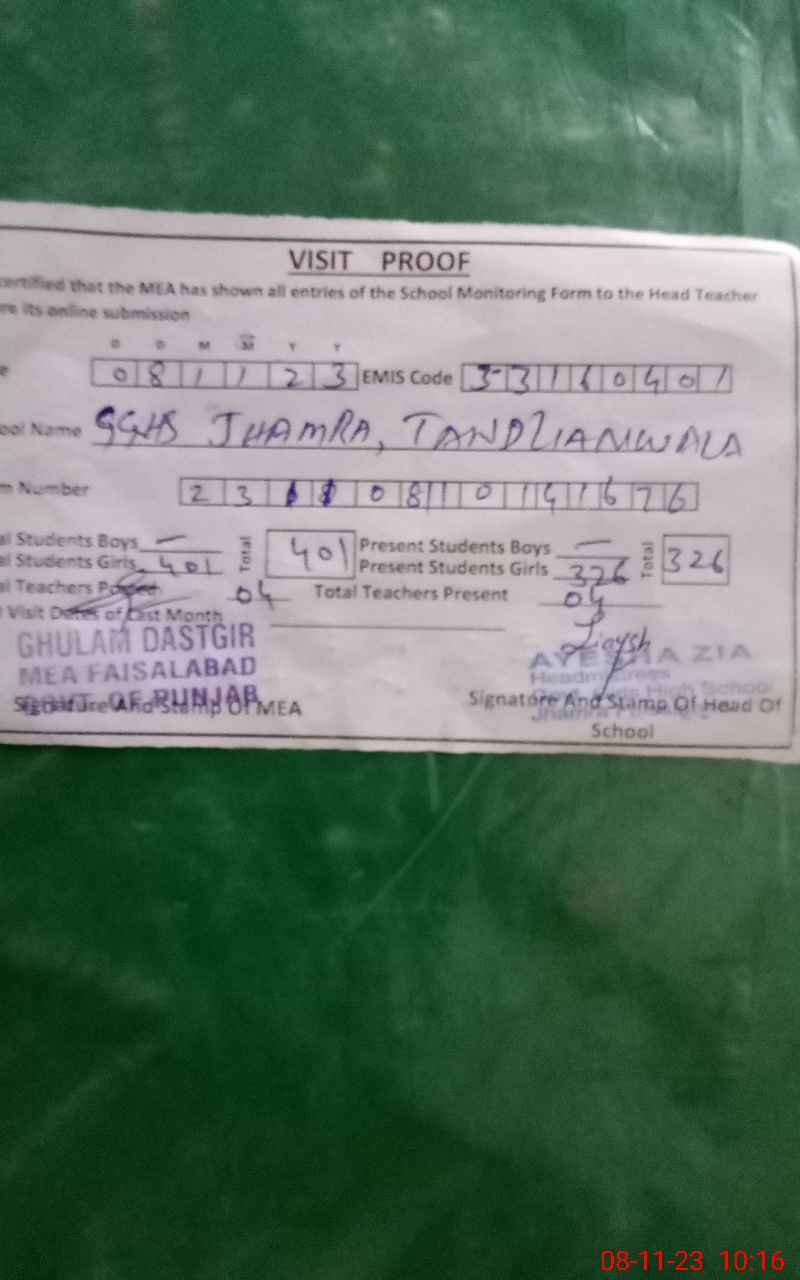 VISIT PROOF
certified that the MEA has shown all entries of the School Monitoring Form to the Head Teacher
re its online submission
D D M M Y Y
e 081123 EMIS Code 33160401
ool Name GGHS JHAMRA, TANDLIANWALA
m Number 23110810141676
al Students Boys — Total 401 Present Students Boys — Total 326
al Students Girls 401 Present Students Girls 326
al Teachers Posted 04 Total Teachers Present 04
Visit Dates of Last Month
GHULAM DASTGIR
MEA FAISALABAD
GOVT. OF PUNJAB
Signature And Stamp Of MEA
AYESHA ZIA
Headmistress
High School
Jhamra
Signatore And Stamp Of Head Of
School
08-11-23 10:16